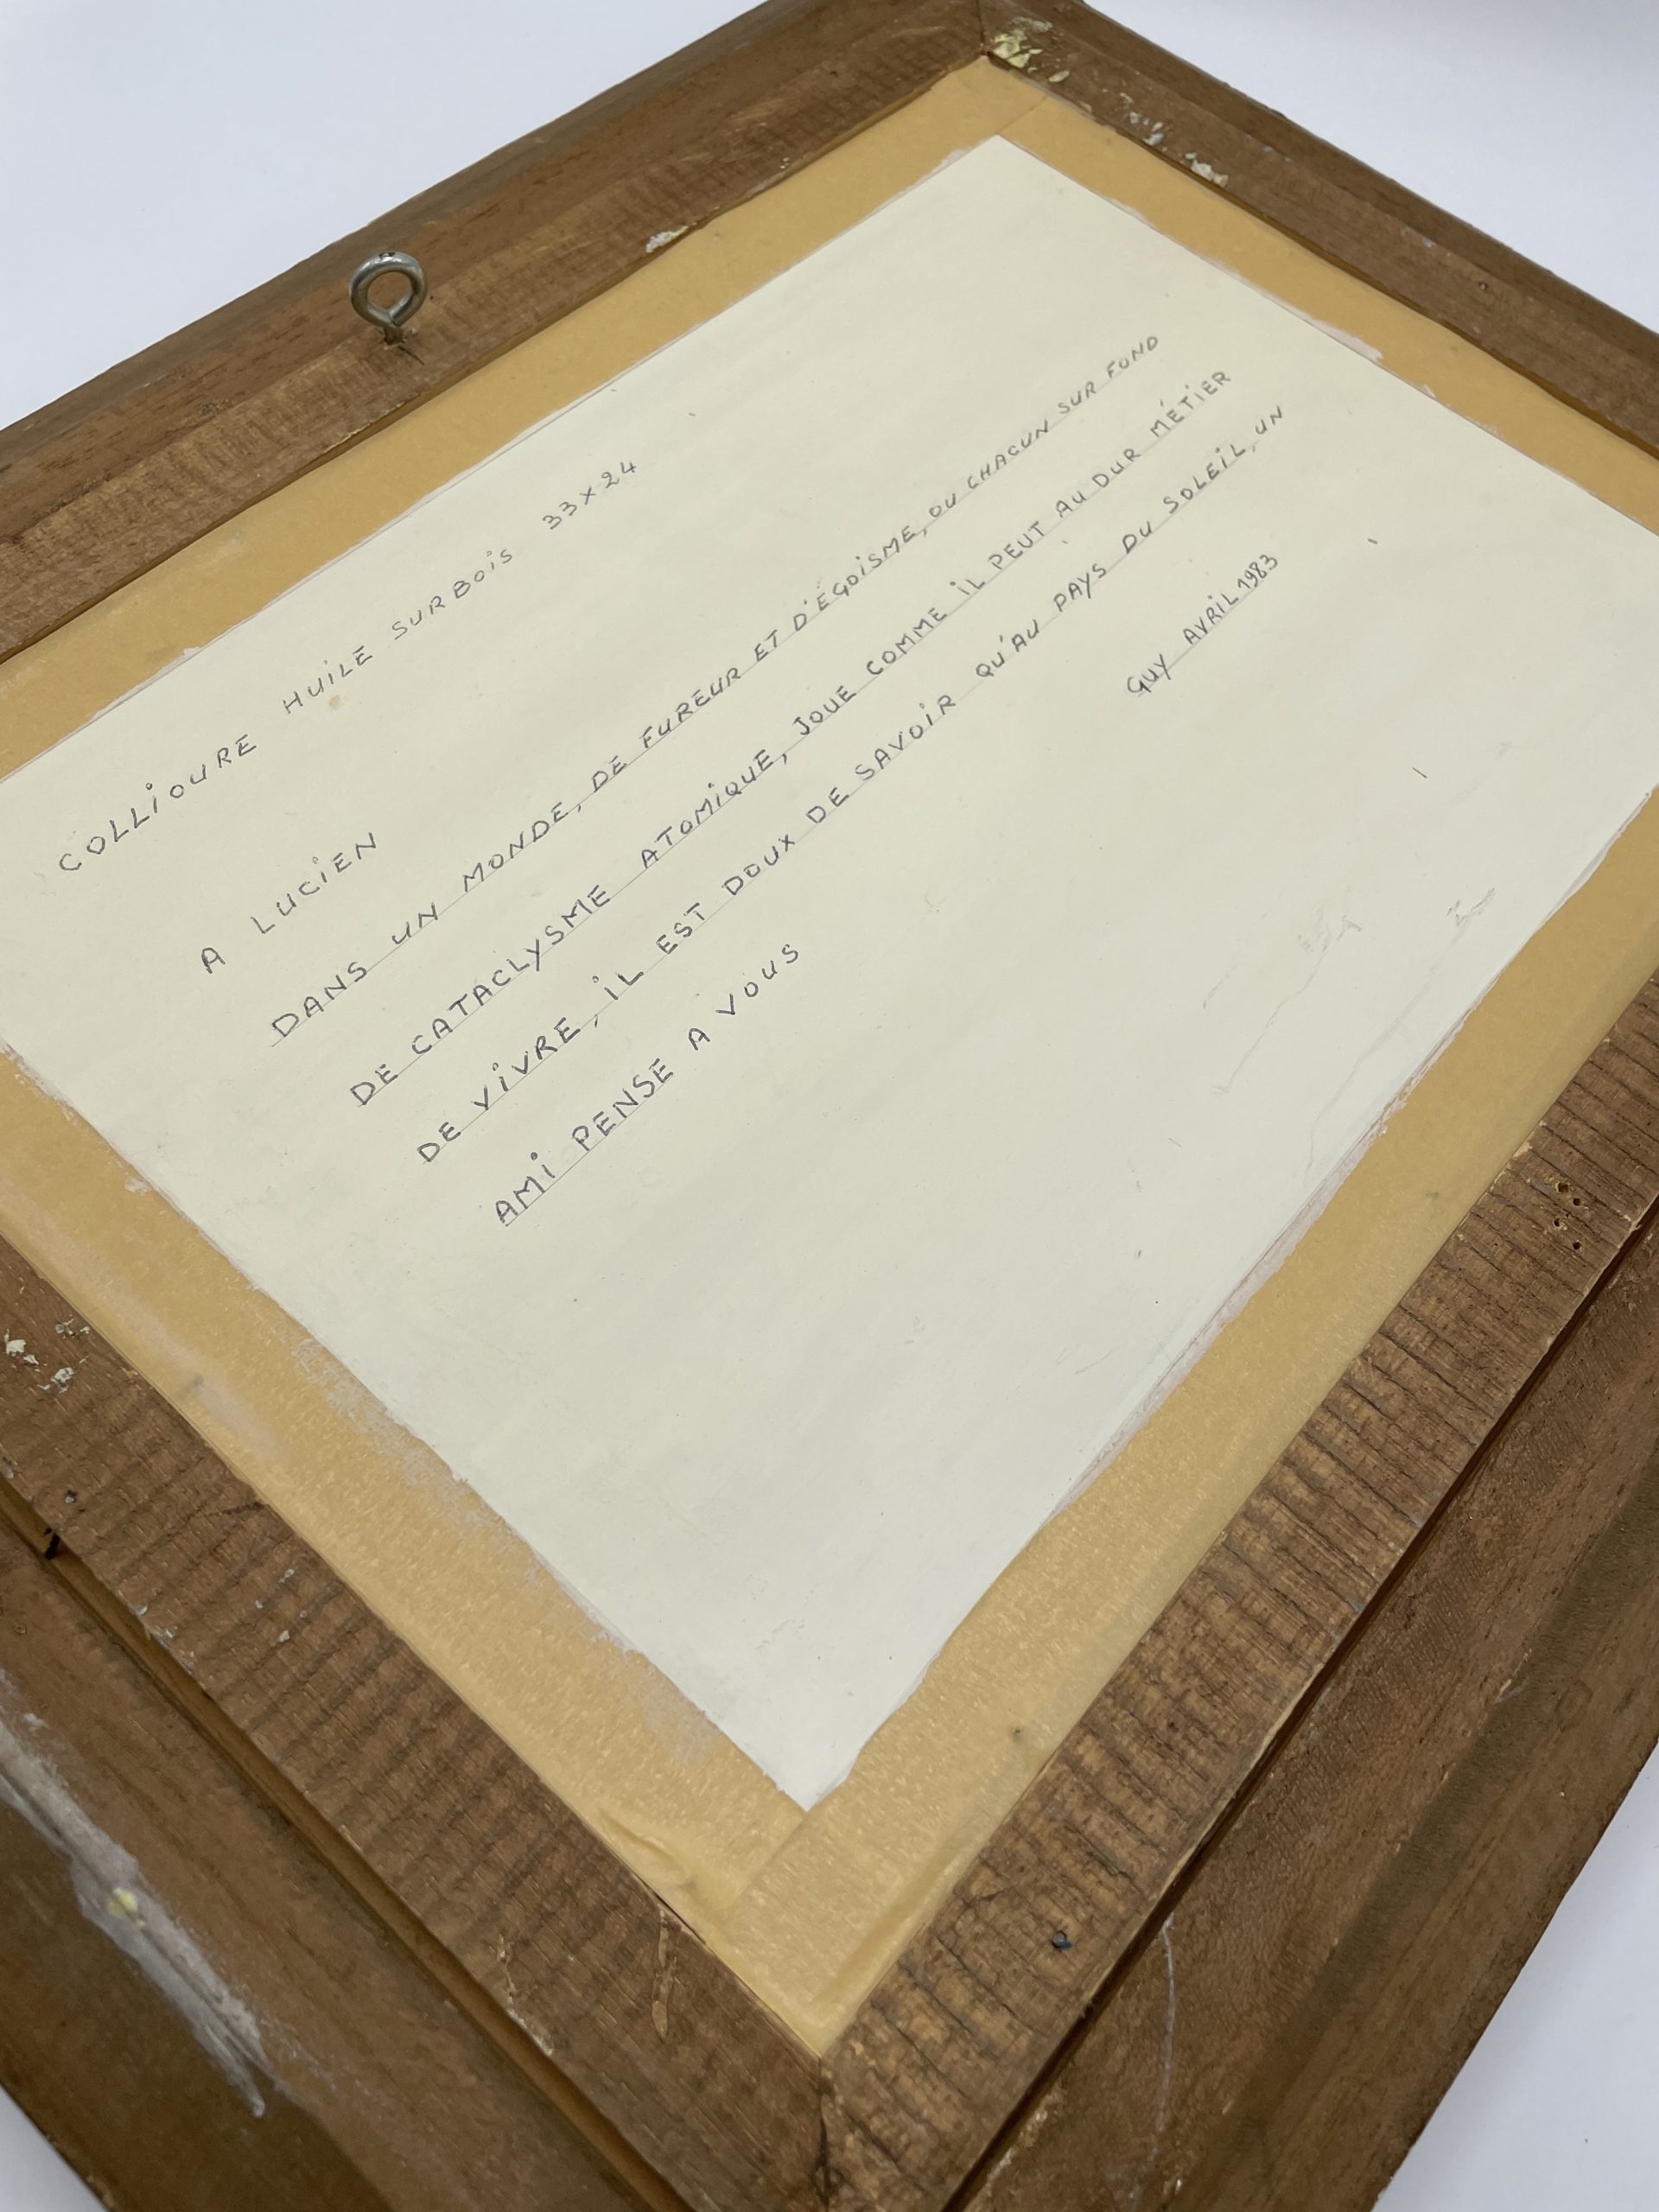 COLLiOURE HUiLE SUR BOiS 33x24
A LUCiEN
DANS UN MONDE, DE FUREUR ET D'ÉGOiSME, OU CHACUN SUR FOND
DE CATACLYSME ATOMiQUE, JOUE COMME iL PEUT AU DUR MÉTiER
DE ViVRE, iL EST DOUX DE SAVOiR QU'AU PAYS DU SOLEiL, UN
AMi PENSE A VOUS
GUY AVRiL 1983